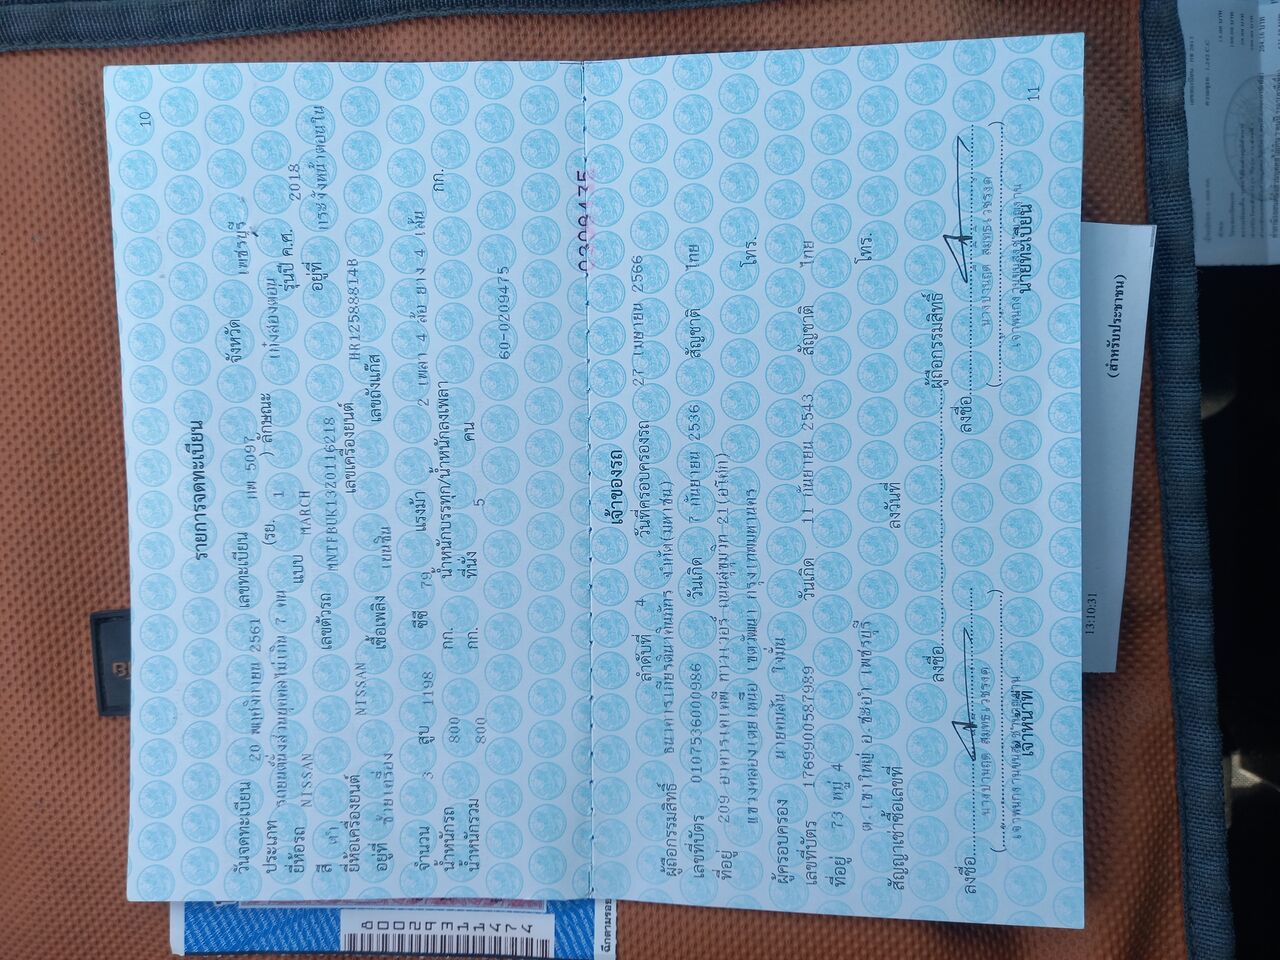 10
รายการจดทะเบียน
วันจดทะเบียน 20 พฤศจิกายน 2561 เลขทะเบียน กพ 5097 จังหวัด เพชรบุรี
ประเภท รถยนต์นั่งส่วนบุคคลไม่เกิน 7 คน (รย. 1 ) ลักษณะ เก๋งสองตอน
ยี่ห้อรถ NISSAN แบบ MARCH รุ่นปี ค.ศ. 2018
สี ดำ เลขตัวรถ MNTFBUK13Z0116218 อยู่ที่ กระจังหน้าตอนใน
ยี่ห้อเครื่องยนต์ NISSAN เลขเครื่องยนต์ HR12588814B
อยู่ที่ ซ้ายเครื่อง เชื้อเพลิง เบนซิน เลขถังแก๊ส
จำนวน 3 สูบ 1198 ซีซี 79 แรงม้า 2 เพลา 4 ล้อ ยาง 4 เส้น
น้ำหนักรถ 800 กก. น้ำหนักบรรทุก/น้ำหนักลงเพลา กก.
น้ำหนักรวม 800 กก. ที่นั่ง 5 คน
60-0209475
เจ้าของรถ
ลำดับที่ 4 วันที่ครอบครองรถ 27 เมษายน 2566
ผู้ถือกรรมสิทธิ์ ธนาคารเกียรตินาคินภัทร จำกัด(มหาชน)
เลขที่บัตร 0107536000986 วันเกิด 7 กันยายน 2536 สัญชาติ ไทย
ที่อยู่ 209 อาคารเคเคพี ทาวเวอร์ ถนนสุขุมวิท 21(อโศก)
แขวงคลองเตยเหนือ เขตวัฒนา กรุงเทพมหานคร โทร.
ผู้ครอบครอง นายคมสัน ใจมั่น
เลขที่บัตร 1769900587989 วันเกิด 11 กันยายน 2543 สัญชาติ ไทย
ที่อยู่ 73 หมู่ 4
ต.เขาใหญ่ อ.ชะอำ เพชรบุรี โทร.
สัญญาเช่าซื้อเลขที่ ลงวันที่
ลงชื่อ ผู้ถือกรรมสิทธิ์
ลงชื่อ ลงชื่อ
เจ้าหน้าที่ นายทะเบียน
11
13:10:31 (สำหรับประชาชน)
8002931474